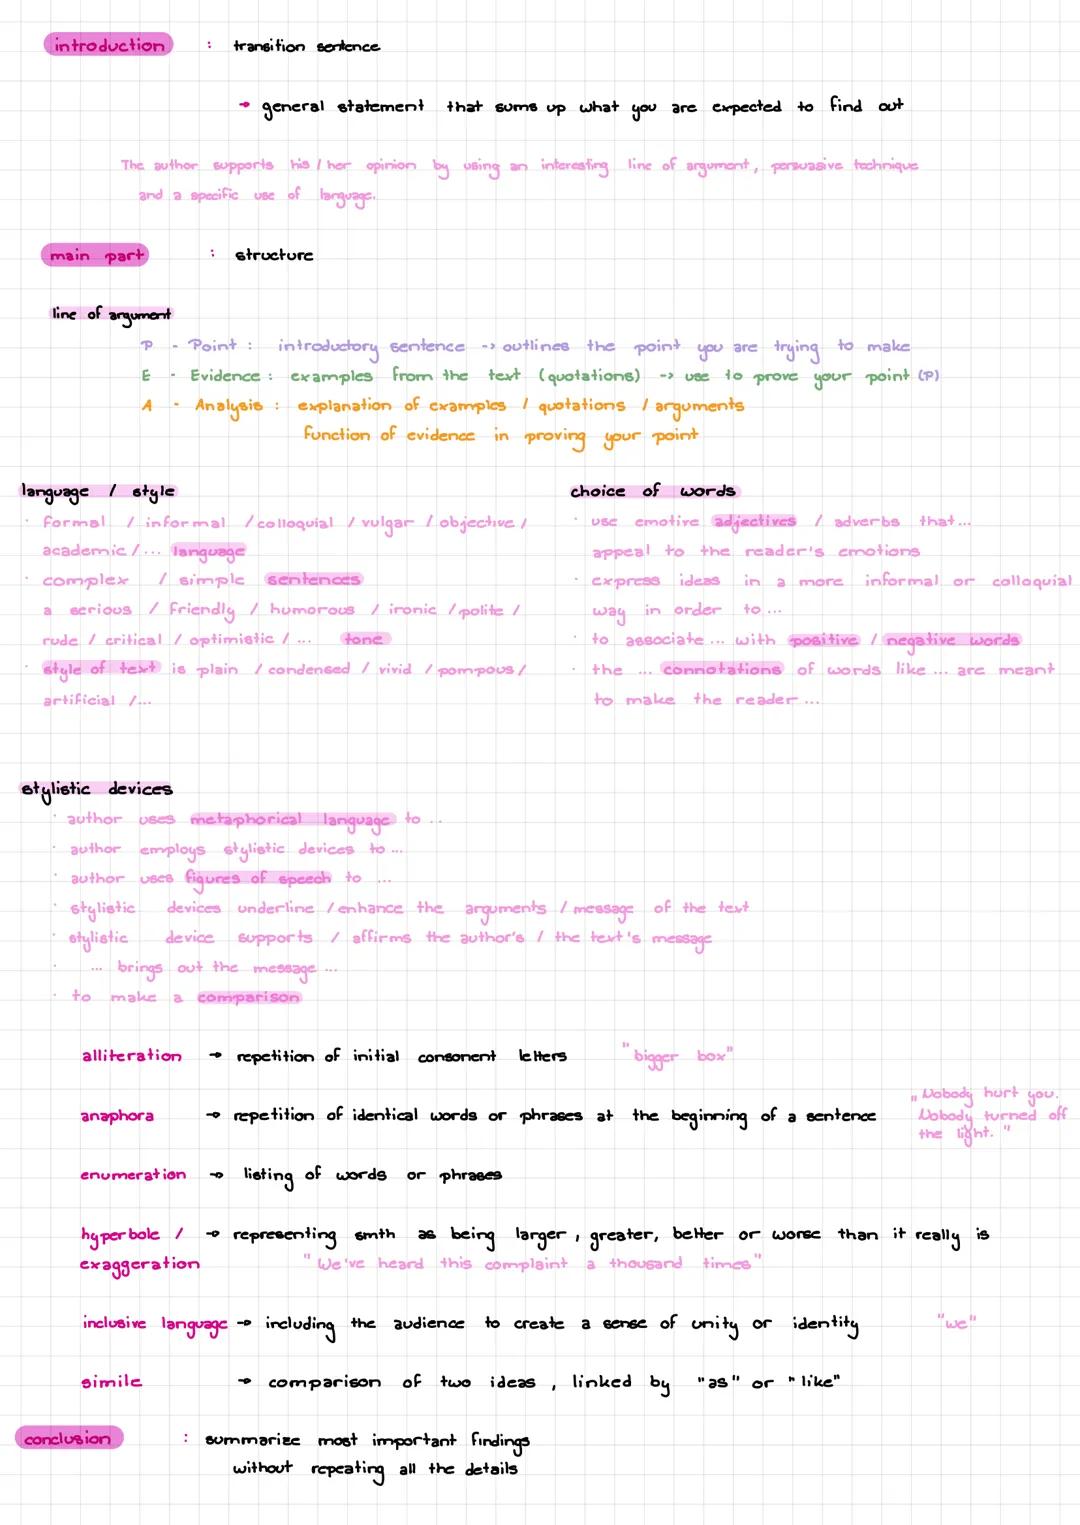 introduction : transition sentence
→ general statement that sums up what you are expected to find out
The author supports his / her opinion by using an interesting line of argument, persuasive technique
and a specific use of language.
main part : structure
line of argument
P - Point : introductory sentence -> outlines the point you are trying to make
E - Evidence : examples from the text (quotations) -> use to prove your point (P)
A - Analysis : explanation of examples / quotations / arguments
function of evidence in proving your point
language / style
· formal / informal / colloquial / vulgar / objective /
academic / ... language
· complex / simple sentences
a serious / friendly / humorous / ironic / polite /
rude / critical / optimistic / ... tone
· style of text is plain / condensed / vivid / pompous /
artificial /...
choice of words
· use emotive adjectives / adverbs that...
appeal to the reader's emotions
· express ideas in a more informal or colloquial
way in order to ...
· to associate ... with positive / negative words
· the ... connotations of words like ... are meant
to make the reader ...
stylistic devices
· author uses metaphorical language to ...
· author employs stylistic devices to ...
· author uses figures of speech to ...
· stylistic devices underline / enhance the arguments / message of the text
· stylistic device supports / affirms the author's / the text's message
· ... brings out the message ...
· to make a comparison
alliteration → repetition of initial consonent letters "bigger box"
anaphora → repetition of identical words or phrases at the beginning of a sentence „Nobody hurt you.
Nobody turned off
the light. "
enumeration → listing of words or phrases
hyperbole / → representing smth as being larger, greater, better or worse than it really is
exaggeration "We've heard this complaint a thousand times"
inclusive language → including the audience to create a sense of unity or identity "we"
simile → comparison of two ideas, linked by "as" or "like"
conclusion : summarize most important findings
without repeating all the details